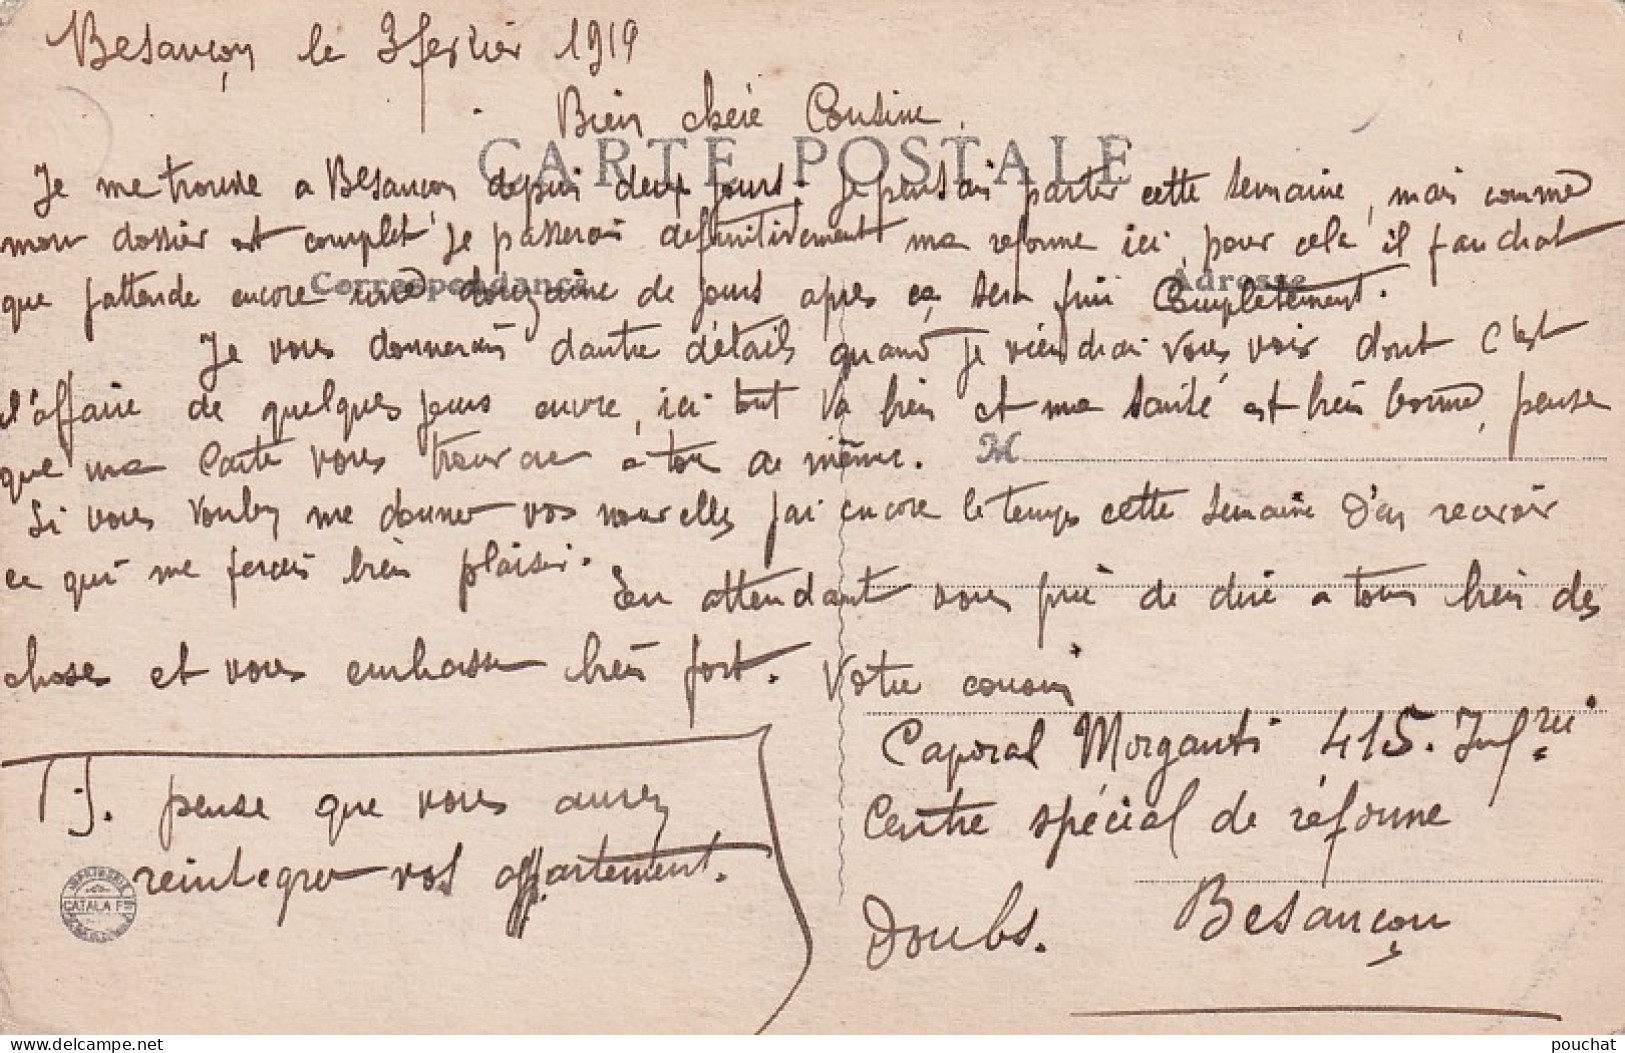 Besançon le 3 fevrier 1919
Bien chére Cousine,
CARTE POSTALE
Je me trouve a Besançon depuis deux jours. Je pensais partir cette semaine, mais comme
mon dossier est complet je passerais definitivement ma reforme ici, pour cela il faudrat
Correspondance
Adresse
que j'attende encore une douzaine de jours apres ça sera fini Complètement.
Je vous donnerais dautre détails quand je viendrai vous voir dont c'est
l'affaire de quelques jours encore, ici tout va bien et ma santé est bien bonne, pense
que ma carte vous trouvera a tou de même.
M
Si vous voulez me donner vos nouvelles j'ai encore le temps cette semaine d'en recevoir
ce qui me ferais bien plaisir.
En attendant vous prie de dire a tous bien des
choses et vous embrasse bien fort. Votre cousin
Caporal Morganti 415. Inf.rie
Centre spécial de réforme
Besançon
Doubs.
P.S. pense que vous aurez
reintegrer vos appartement.
IMPRIMERIE
CATALA F
delcampe.net
pouchat